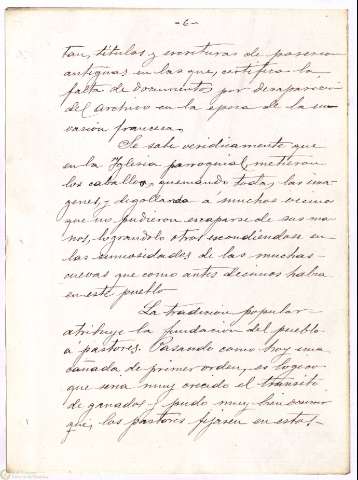 -6-
tan, títulos y escrituras de posesion
antiguas en las que, certifica la
falta de documentos por desaparicion
del archivo en la época de la in-
vasión francesa.
Se sabe veridicamente que
en la Iglesia parroquial metieron
los caballos, quemando todas las ima-
genes, y degollando a muchos vecinos
que no pudieron escaparse de sus ma-
nos, lograndolo otros escondiendose en
las sinuosidades de las muchas
cuevas que como antes decimos habia
en este pueblo
La tradicion popular
atribuye la fundación del pueblo
á pastores. Pasando como hoy una
cañada de primer orden, es logico
que era muy crecido el tránsito
de ganados y pudo muy bien ocurrir
que, los pastores fijasen en estos,